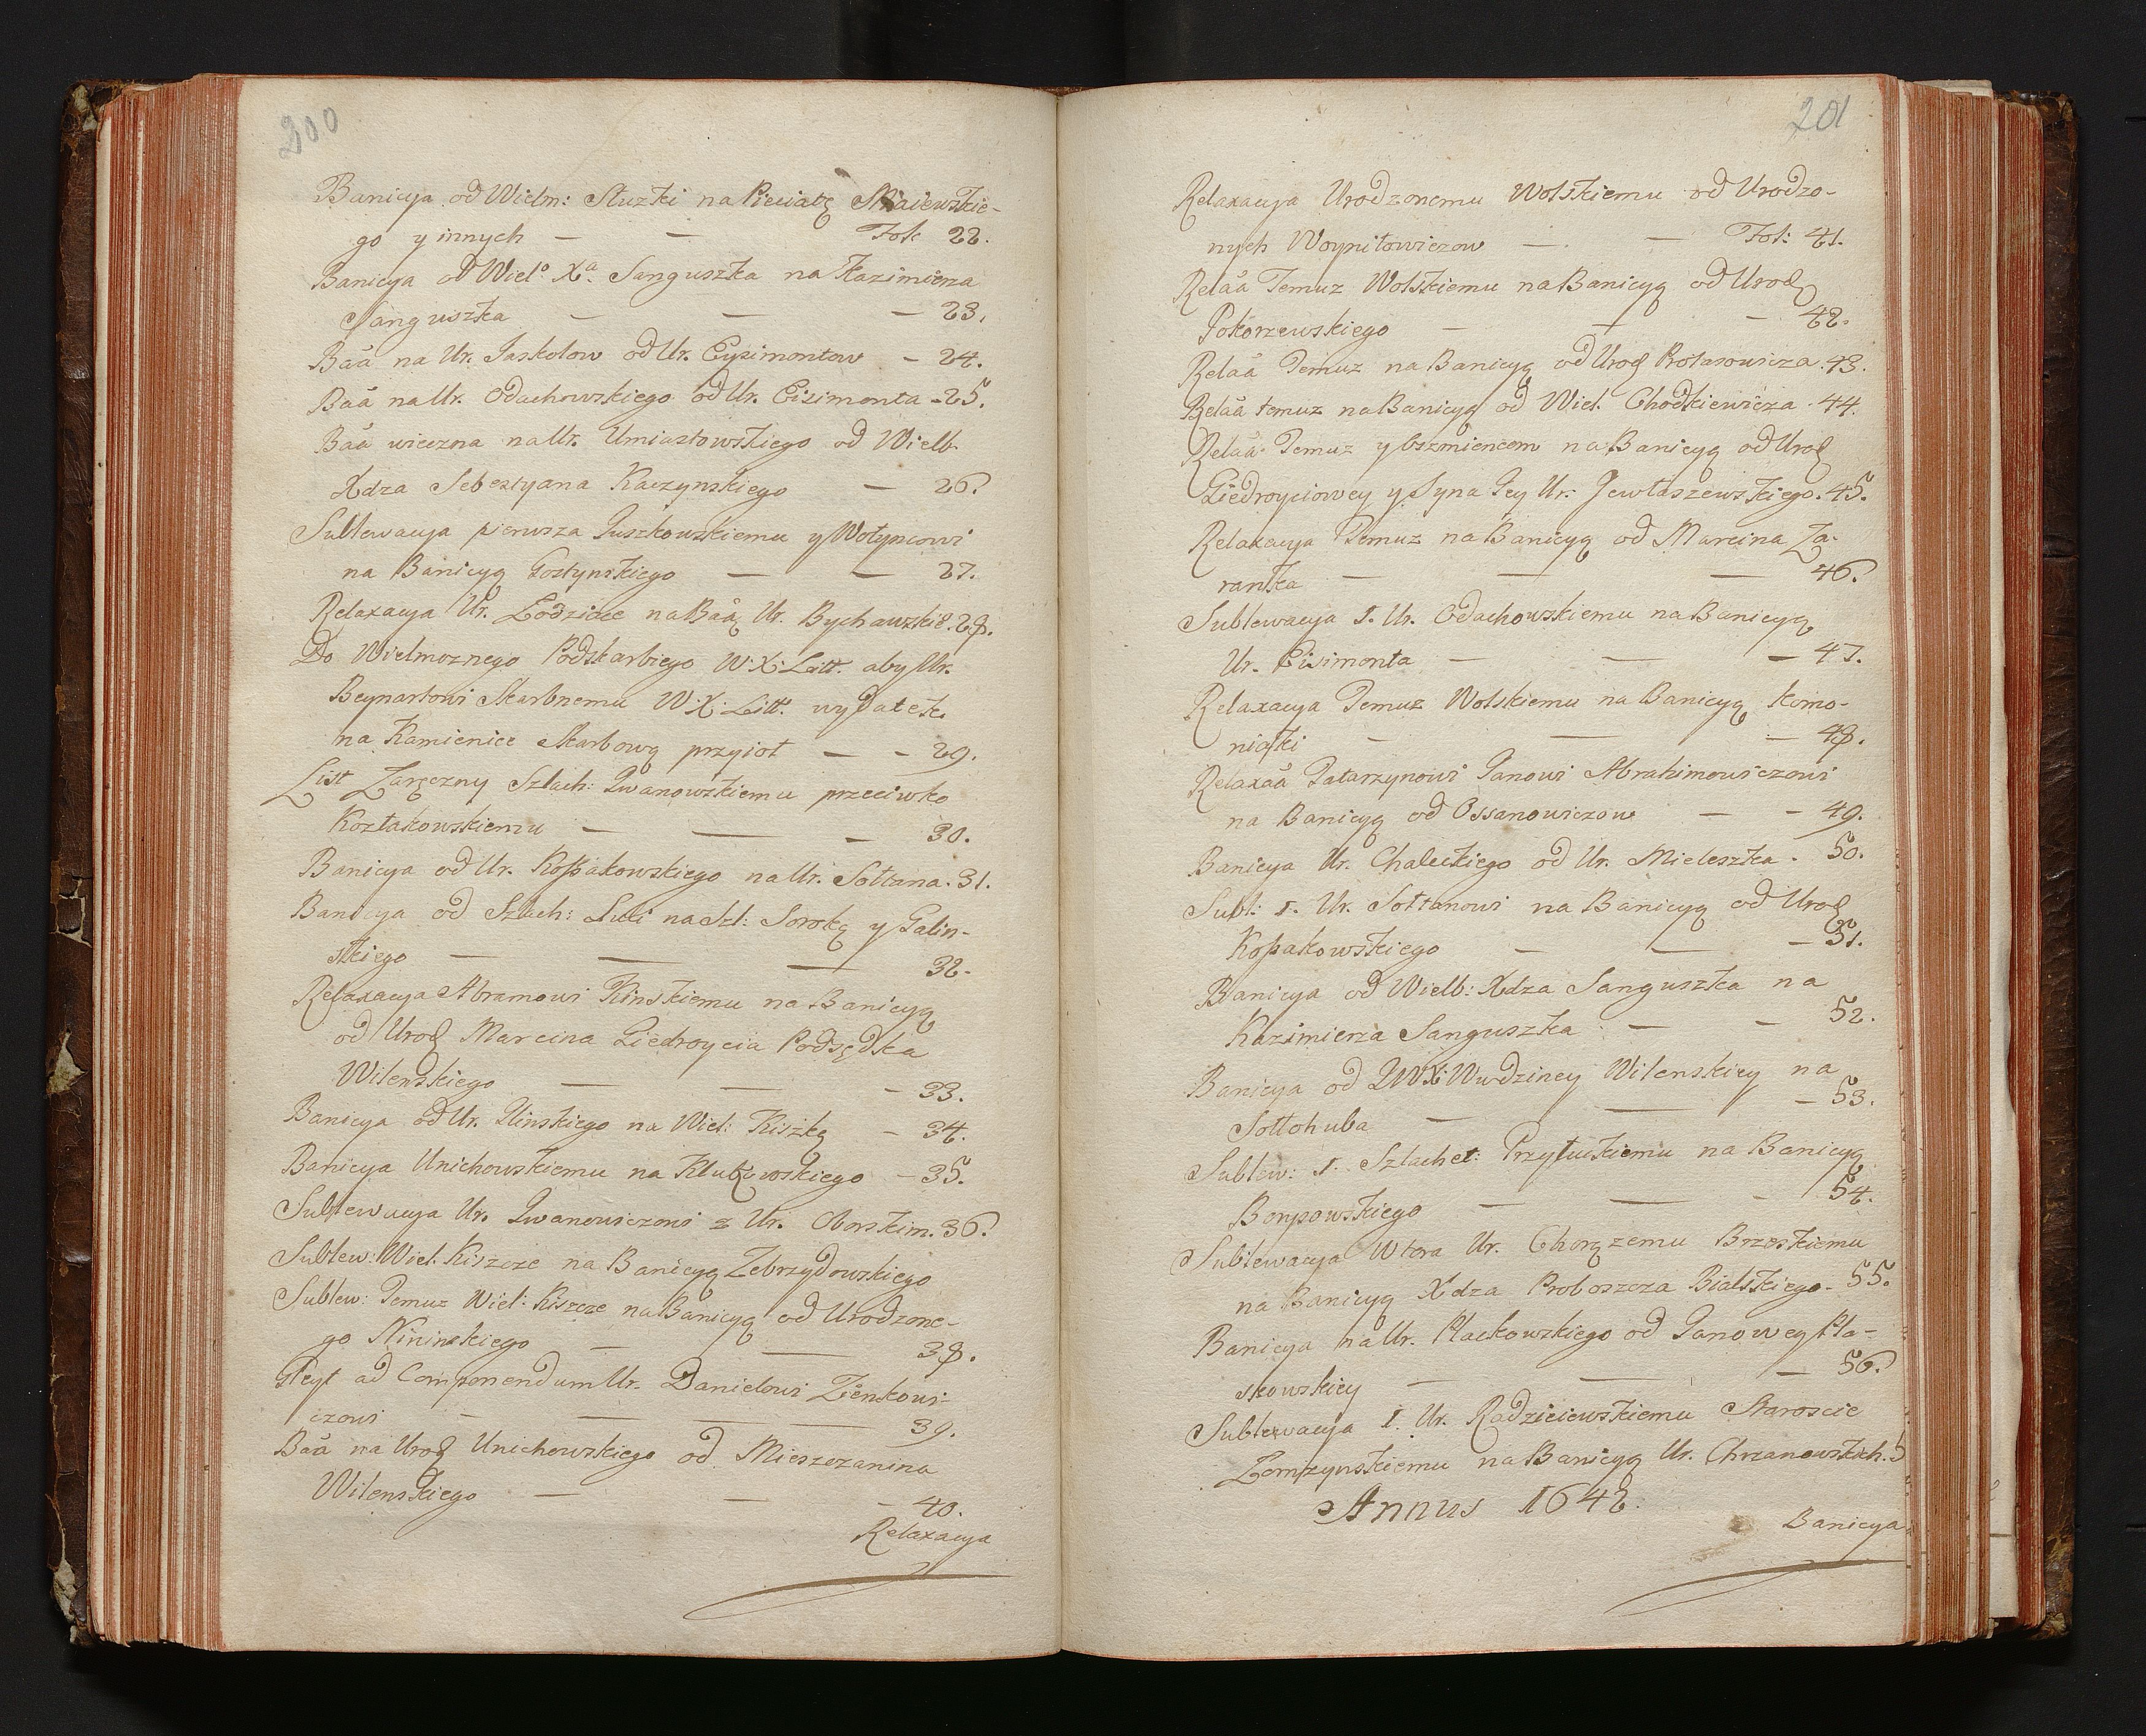 200
Banicya od Wielm: Służki na Pieciatę Maiewskie-
go y innych — — Fol: 22.
Banicya od Wielo Xa. Sanguszka na Kazimierza
Sanguszka — — — 23.
Baa na Ur. Jaskołow od Ur. Eysimontow — 24.
Baa na Ur. Odachowskiego od Ur. Eisimonta - 25.
Baa wieczna na Ur. Umiastowskiego od Wielb
Xdza Sebestyana Kaczynskiego — 26.
Sublewacya pierwsza Juszkowskiemu y Wołyncowi
na Banicyą Gostynskiego — — 27.
Relaxacya Ur. Łodziace na Baą Ur. Bychawskie. 28.
Do Wielmoznego Podskarbiego W: X: Litt. aby Ur.
Beynartowi Skarbnemu W: X: Litt. wydatek
na Kamienice Skarbową przyioł — — 29.
List Zaręczny Szlach: Iwanowskiemu przeciwko
Kozłakowskiemu — — — 30.
Banicya od Ur. Kossakowskiego na Ur. Sołtana. 31.
Banicya od Szlach: Luti na Szl: Sorokę y Galin-
skiego — — — 32.
Relaxacya Abramowi Ilinskiemu na Banicyą
od Urod Marcina Giedroycia Podsędka
Wilenskiego — — — 33.
Banicya od Ur. Ilinskiego na Wiel: Kiszkę — 34.
Banicya Unichowskiemu na Klukowskiego — 35.
Sublewacya Ur. Iwanowiczowi z Ur. Oborskim. 36.
Sublew: Wiel. Kiszcze na Banicyą Zebrzydowskiego
Sublew: Temuz Wiel: Kiszcze na Banicyą od Urodzone-
go Nininskiego — — 38.
Gleyt ad Componendum Ur. Danielowi Zienkowi-
czowi — — — 39.
Baa na Urod Unichowskiego od Mieszczanina
Wilenskiego — — — 40.
Relaxacya
201
Relaxacya Urodzonemu Wolskiemu od Urodzo-
nych Woyniłowiczow — — Fol: 41.
Relaa Temuz Wolskiemu na Banicyą od Urod
Pokorzewskiego — — — 42.
Relaa Temuz na Banicyą od Urod Protasowicza. 43.
Relaa temuz na Banicyą od Wiel. Chodkiewicza. 44.
Relaa Temuz y Oszmiencom na Banicyą od Urod
Giedroyciowey y Syna Jey Ur. Jewłaszewskiego. 45.
Relaxacya Temuz na Banicyą od Marcina Za-
ranka — — — 46.
Sublewacya 1. Ur. Odachowskiemu na Banicyą
Ur. Eisimonta — — — 47.
Relaxacya Temuz Wolskiemu na Banicyą Komo-
niąki — — — 48.
Relaxaa Tatarzynowi Janowi Abrahimowiczowi
na Banicyą od Ossanowiczow — — 49.
Banicya Ur. Chaleckiego od Ur. Mieleszka. 50.
Subl: 1. Ur. Sołtanowi na Banicyą od Urod
Kossakowskiego — — — 51.
Banicya od Wielb: Xdza Sanguszka na
Kazimierza Sanguszka — — 52.
Banicya od Wwdziney Wilenskiey na
Sołłohuba — — — 53.
Sublew: 1. Szlachet: Przyłuckiemu na Banicyą
Borysowskiego — — — 54.
Sublewacya Wtora Ur. Chorązemu Brzeskiemu
na Banicyą Xdza Proboszcza Bialskiego. 55.
Banicya na Ur. Płackowskiego od Janowey Pła-
skowskiey — — — 56.
Sublewacya 1. Ur. Radzieiewskiemu Staroscie
Łomzynskiemu na Banicyą Ur. Chrzanowskich. 5
Annus 1642.
Banicya